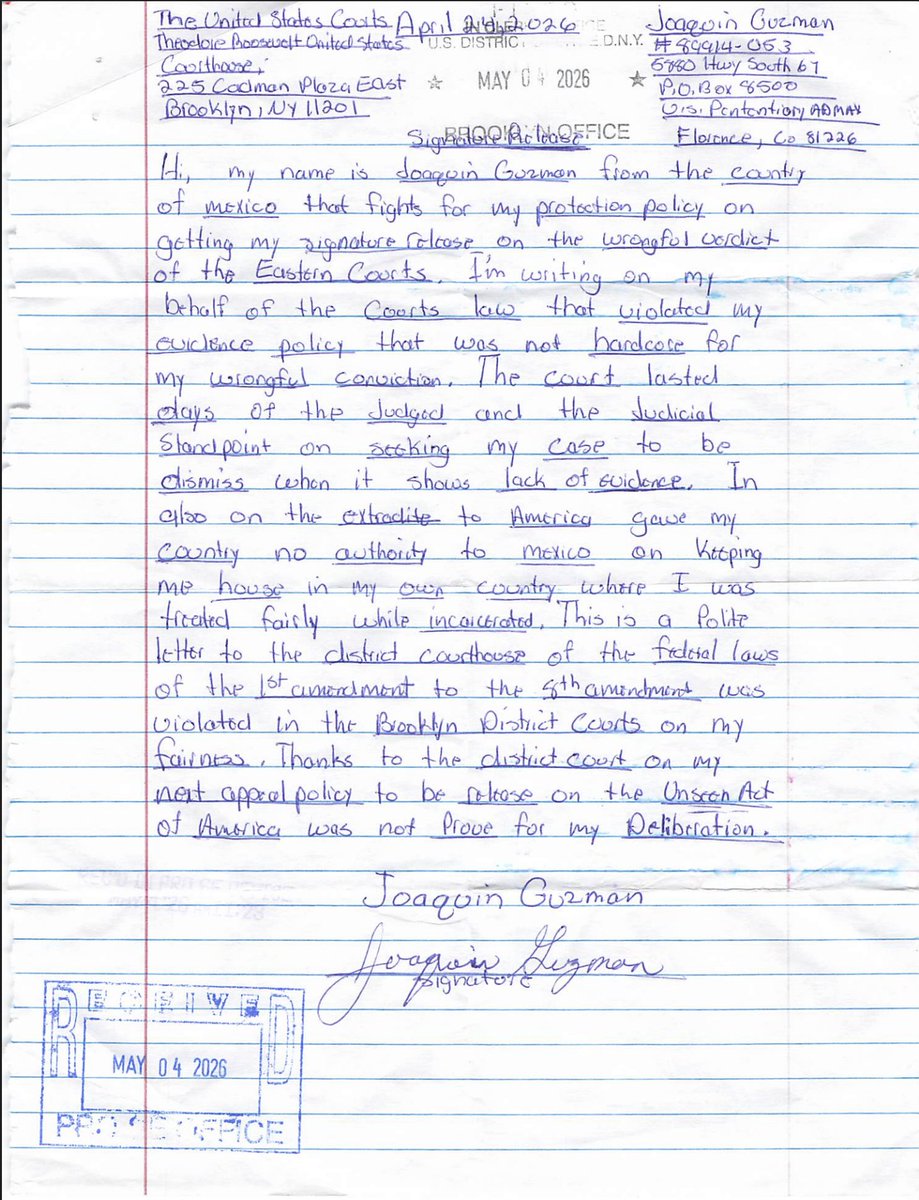 The United States Courts
Theodore Roosevelt United States
Courthouse,
225 Cadman Plaza East
Brooklyn, NY 11201
April 2026
OFFICE
U.S. DISTRIC D.N.Y.
★ MAY 04 2026 ★
BROOKLYN OFFICE
Joaquin Guzman
#89914-053
5880 Hwy South 67
P.O. Box 8500
U.S. Pentontiary ADMAX
Florence, Co 81226
Signature Release
Hi, my name is Joaquin Guzman from the country
of mexico that fights for my protection policy on
getting my signature release on the wrongful verdict
of the Eastern Courts. I'm writing on my
behalf of the Courts law that violated my
evidence policy that was not hardcose for
my wrongful conviction. The court lasted
days of the Judged and the Judicial
Standpoint on seeking my case to be
dismiss when it shows lack of evidence. In
also on the extradite to America gave my
country no authority to mexico on keeping
me house in my own country where I was
treated fairly while incarcerated. This is a Polite
letter to the district courthouse of the federal laws
of the 1st amendment to the 8th amendment was
violated in the Brooklyn District Courts on my
fairness. Thanks to the district court on my
next appeal policy to be release on the Unseen Act
of America was not Prove for my Deliberation.
Joaquin Guzman
Joaquin Guzman
Signature
RECEIVED
MAY 04 2026
PRO SE OFFICE